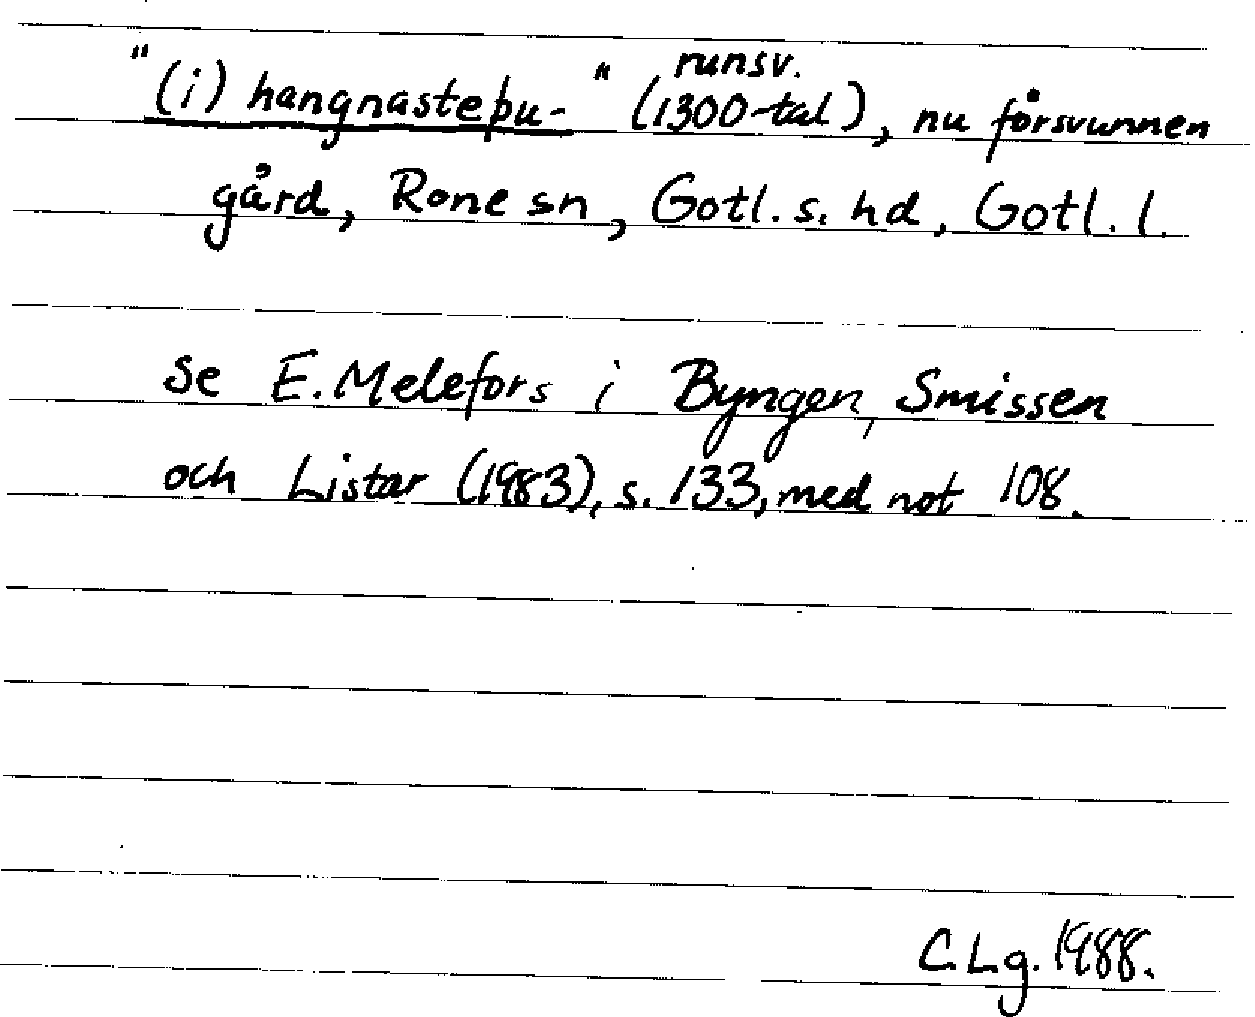 "(i) hangnasteþu-" (runsv. 1300-tal), nu försvunnen
gård, Rone sn, Gotl. s. hd, Gotl. l.
Se E. Melefors i Byngen, Smissen
och Listar (1983), s. 133, med not 108.
C. Lg. 1988.